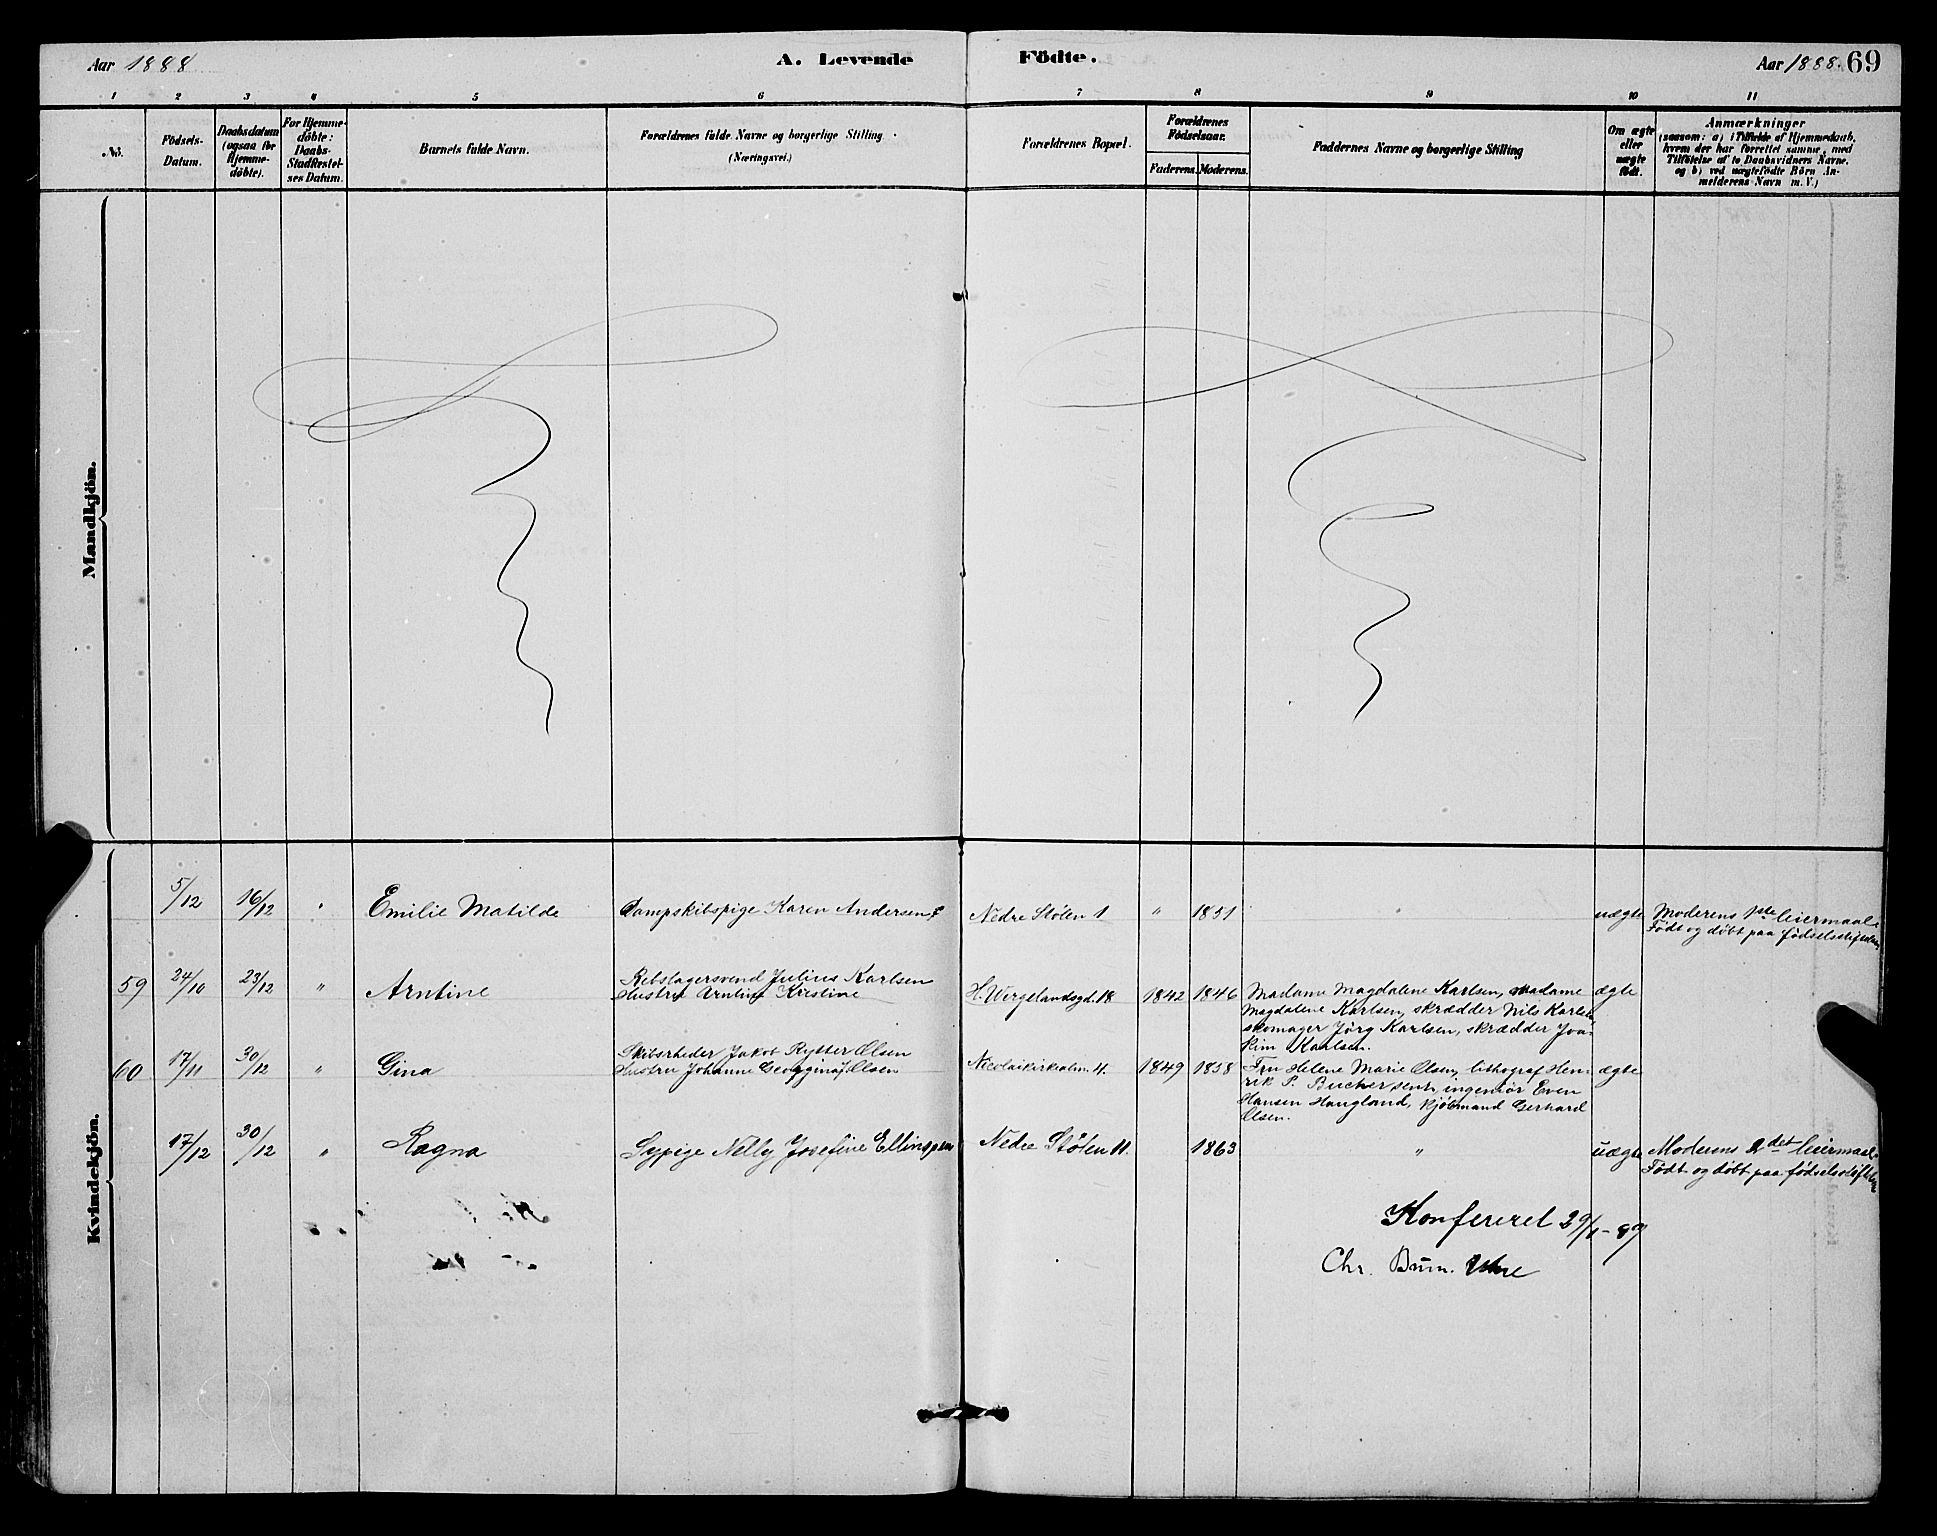 Aar 1888
A. Levende Födte.
Aar 1888. 69
1 2 3 4 5 6 7 8 9 10 11
No.
Födsels-
Datum.
Daabsdatum
(ogsaa for
Hjemme-
döbte).
For Hjemme-
döbte:
Daabs-
Stadfæstel-
ses Datum.
Barnets fulde Navn.
Forældrenes fulde Navne og borgerlige Stilling
(Næringsvei.)
Forældrenes Bopæl.
Forældrenes
Födselsaar.
Faderens. Moderens.
Faddernes Navne og borgerlige Stilling
Om ægte
eller
uægte
födt.
Anmærkninger
(saasom: a) i Tilfælde af Hjemmedaab,
hvem der har forrettet samme, med
Tilföielse af to Daabsvidners Navne.
og b) ved uægtefödte Börn An-
melderens Navn m. V.)
Mandkjön.
Kvindekjön.
5/12 16/12 " Emilie Matilde
Dampskibspige Karen Andersen
Nedre Stølen 1 " 1851 " uægte
Moderens 1ste leiermaal.
Født og døbt paa fødselsstiftelsen
59 24/10 23/12 " Arntine
Rebslagersvend Julius Karlsen
Hustru Arntine Kristine
H. Wergelandsgd. 18 1842 1846
Madame Magdalene Karlsen, Madame
Magdalene Karlsen, skrædder Nils Karlsen
skomager Jørg Karlsen, skrædder Joa-
kim Karlsen.
ægte
60 17/11 30/12 " Gina
Skibsrheder Jakob Rytter Olsen
Hustru Johanne Georgina Olsen
Nicolaikirkealm. 4. 1849 1858
Fru Helene Marie Olsen, lithograf Hen-
rik P. Bucher senr, ingeniør Even
Hansen Haugland, kjøbmand Gerhard
Olsen.
ægte
17/12 30/12 " Ragna
Sypige Nelly Josefine Ellingsen
Nedre Stølen 11 1863 " uægte
Moderens 2det leiermaal.
Født og døbt paa fødselsstiftelsen
Konfereret 29/1-89
Chr. Brun.